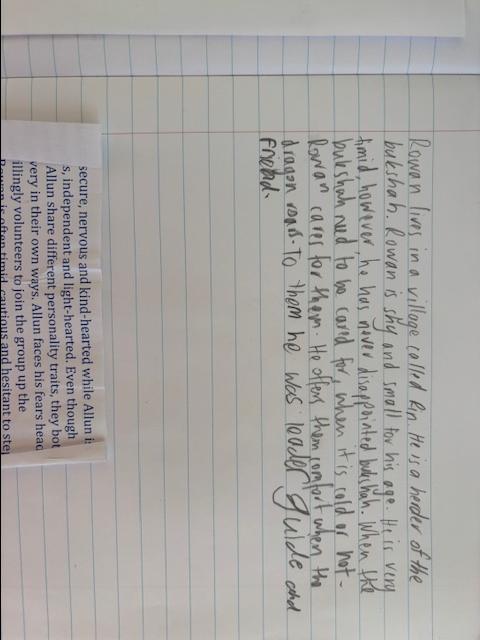 Rowan lives in a village called Rin. He is a herder of the
bukshah. Rowan is shy and small for his age. He is very
timid however, he has never disappointed bukshah. When the
bukshah need to be cared for, when it is cold or hot-
Rowan cares for them. He offers them comfort when the
dragon roars. To them he was leader guide and
friend.
secure, nervous and kind-hearted while Allun i
s, independent and light-hearted. Even though
Allun share different personality traits, they bot
very in their own ways. Allun faces his fears head
illingly volunteers to join the group up the
Rowan is often timid, cautious and hesitant to step